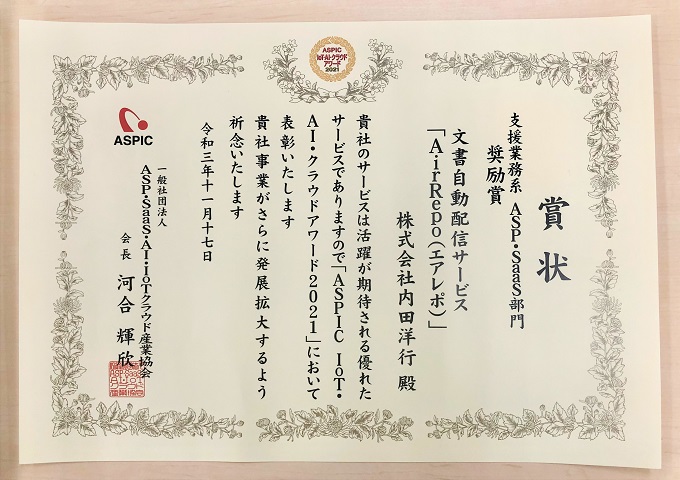 ASPIC
IoT・AI・クラウド
アワード
2021
賞状
支援業務系 ASP・SaaS部門
奨励賞
文書自動配信サービス
「AirRepo(エアレポ)」
株式会社内田洋行 殿
貴社のサービスは活躍が期待される優れた
サービスでありますので「ASPIC IoT・
AI・クラウドアワード2021」において
表彰いたします
貴社事業がさらに発展拡大するよう
祈念いたします
令和三年十一月十七日
ASPIC
一般社団法人
ASP・SaaS・AI・IoTクラウド産業協会
会長 河合 輝欣